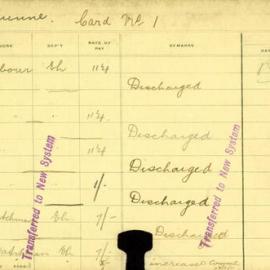 Card No 1
DEP'T RATE OF PAY REMARKS
bour Eh 11¼
Discharged
11¼
Discharged
11¼
Discharged
1/-
Discharged
Eh 7/-
Discharged
Eh 7/-
increased
Transferred to New System
Transferred to New System